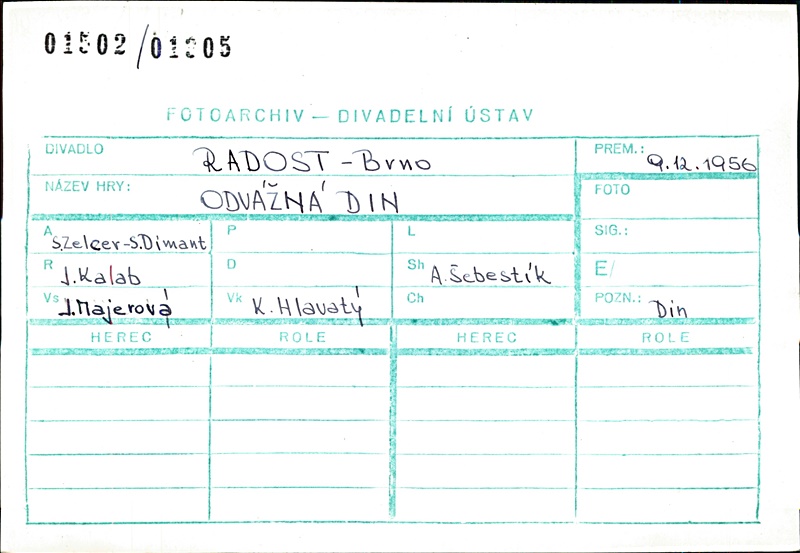 01502/01305
FOTOARCHIV — DIVADELNÍ ÚSTAV
DIVADLO RADOST - Brno PREM.: 9.12.1956
NÁZEV HRY: ODVÁŽNÁ DIN FOTO
A S.Zelcer-S.Dimant P L SIG.:
R J.Kalab D Sh A.Šebestík E/
Vs J.Majerová Vk K.Hlavatý Ch POZN.: Din
HEREC ROLE HEREC ROLE